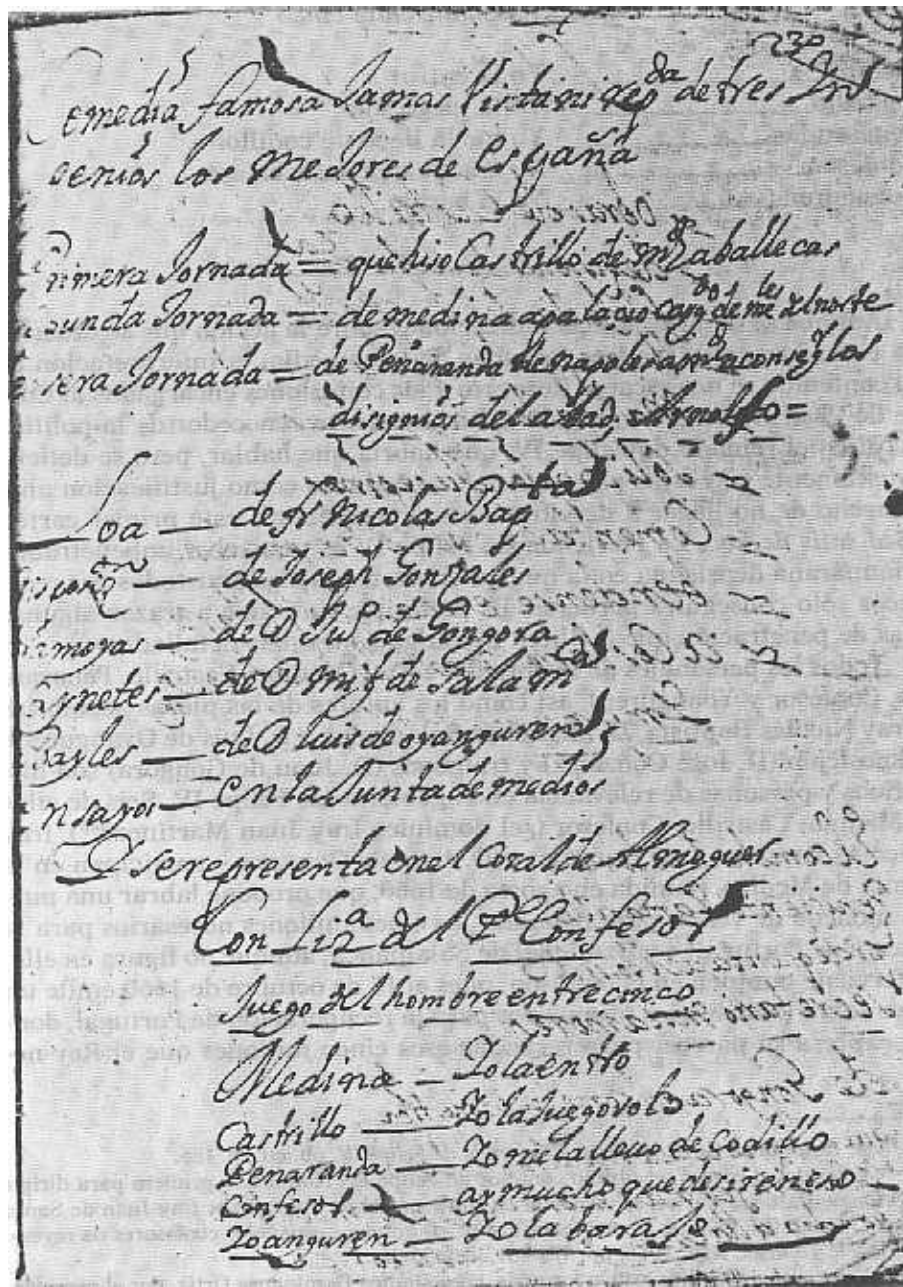 Comedia famosa Jamas Vista ni rep.da de tres Yn
genios los Mejores de España
Primera Jornada = que hiso Castrillo de m.d a ballecas
segunda Jornada = de medina a palacio
tersera Jornada = de Peñaranda de napoles a m.d a conseg los
disignios del abad Arnolfo =
Loa — de fr Nicolas Bap.ta
— de Joseph Gonzales
— de D Ju.o de Gongora
Saynetes — de D Mig.l de Salam.ca
Bayles — de D luis de oyanguren
Ensayos — en la Junta de medios
Y se representa en el Coral de Almoguer
Con Liz.a del P.e Confesor
Juego del hombre entre cinco
Medina — Yo la entro
Castrillo — Yo la Juego solo
Peñaranda — Yo me la lleuo de Codillo
Confesor — ay mucho que desir en eso —
Yoanguren — Yo la barajo —